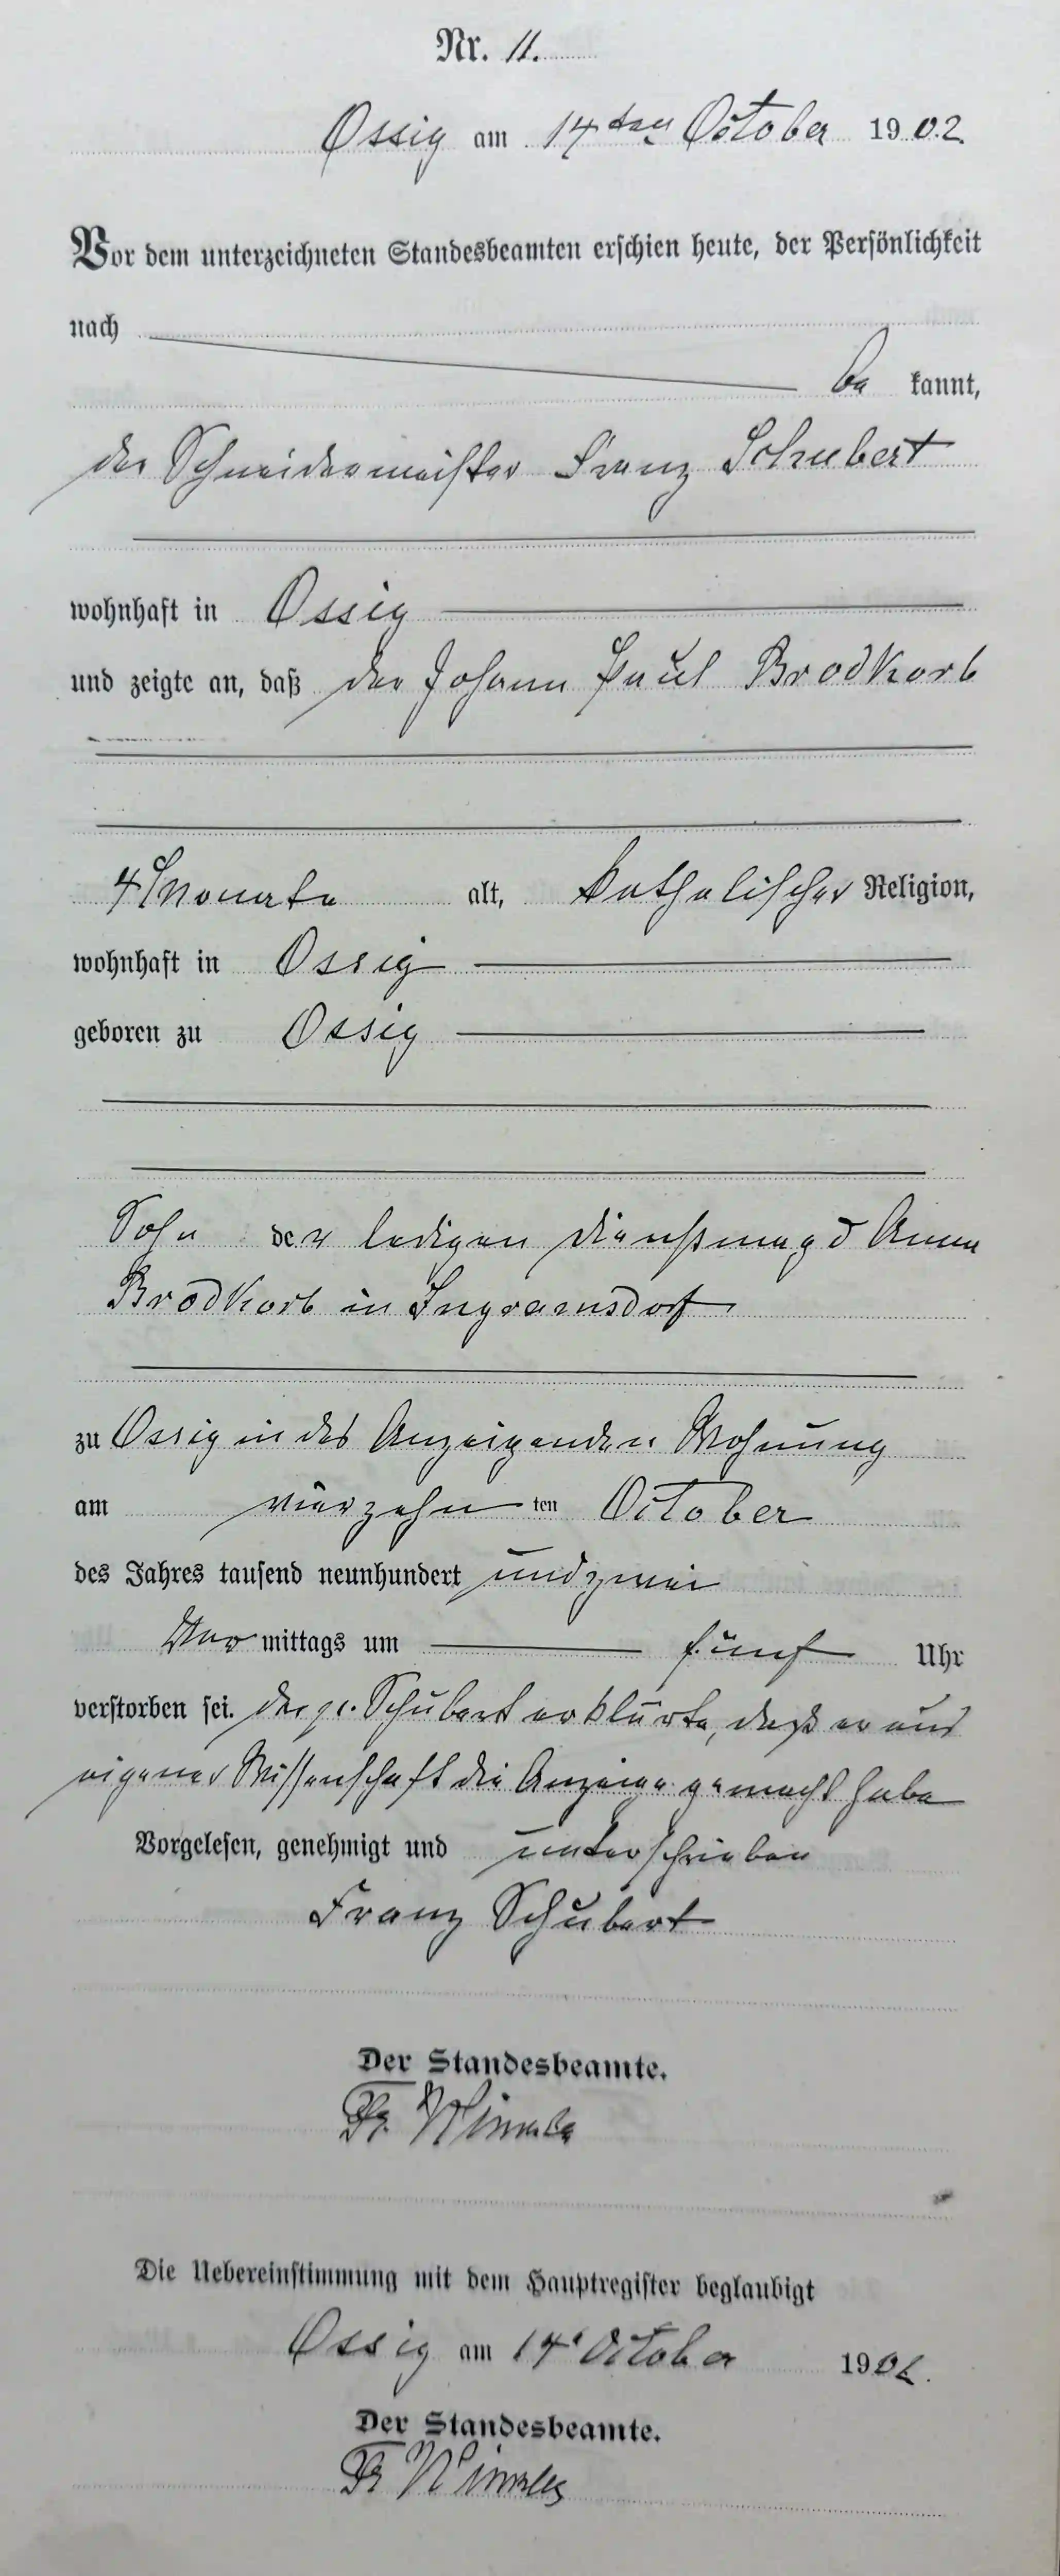 Nr. 11.
Ossig am 14ten October 1902.
Vor dem unterzeichneten Standesbeamten erschien heute, der Persönlichkeit
nach
be kannt,
der Schneidermeister Franz Schubert
wohnhaft in Ossig
und zeigte an, daß der Johann Paul Brodkorb
4 Monate alt, katholischer Religion,
wohnhaft in Ossig
geboren zu Ossig
Sohn der ledigen Dienstmagd Anna
Brodkorb in Ingramsdorf
zu Ossig in des Anzeigenden Wohnung
am vierzehn ten October
des Jahres tausend neunhundert und zwei
Vor mittags um fünf Uhr
verstorben sei. Der pp. Schubert erklärte, daß er aus
eigener Wissenschaft die Anzeige gemacht habe
Vorgelesen, genehmigt und unterschrieben
Franz Schubert
Der Standesbeamte.
Fr.
Die Uebereinstimmung mit dem Hauptregister beglaubigt
Ossig am 14t October 1902.
Der Standesbeamte.
Fr